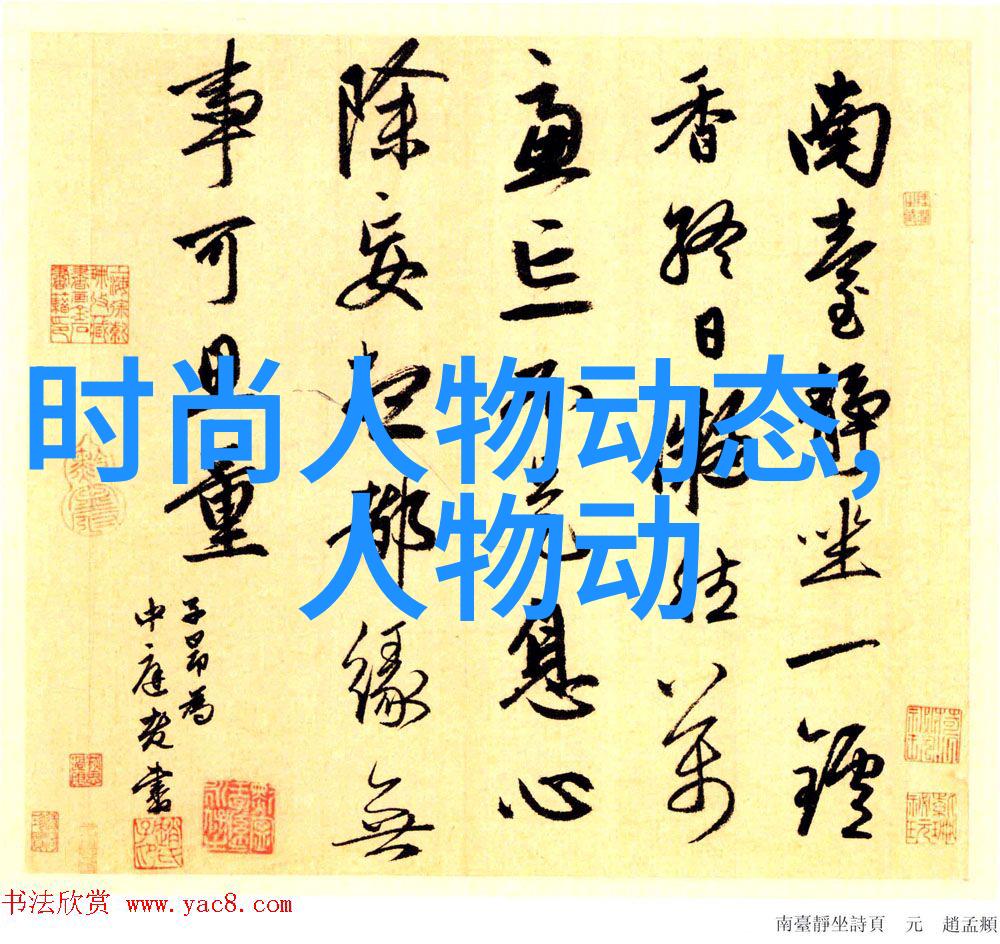 南臺靜坐一鑪
香終日凝然萬
慮亡不是息心
除妄想都緣無
事可思量
子昂為
中庭老書
时尚人物动态,
人物动
书法欣赏 www.yac8.com
南臺靜坐詩頁 元 趙孟頫